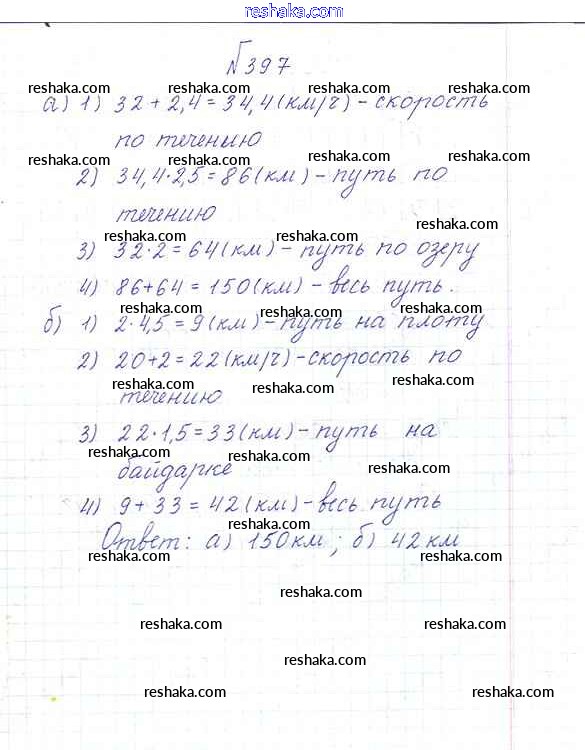 reshaka.com
№397
reshaka.com reshaka.com reshaka.com reshaka.com
а) 1) 32 + 2,4 = 34,4 (км/ч) - скорость
по течению
reshaka.com reshaka.com reshaka.com reshaka.com
2) 34,4·2,5 = 86 (км) - путь по
течению
reshaka.com reshaka.com reshaka.com
3) 32·2 = 64 (км) - путь по озеру
4) 86+64 = 150 (км) - весь путь.
reshaka.com reshaka.com reshaka.com
б) 1) 2·4,5 = 9 (км) - путь на плоту
2) 20+2 = 22 (км/ч) - скорость по
reshaka.com reshaka.com reshaka.com
течению
3) 22·1,5 = 33 (км) - путь на
reshaka.com reshaka.com reshaka.com
байдарке
4) 9 + 33 = 42 (км) - весь путь
reshaka.com
Ответ: а) 150 км; б) 42 км
reshaka.com reshaka.com reshaka.com
reshaka.com
reshaka.com reshaka.com
reshaka.com
reshaka.com reshaka.com reshaka.com